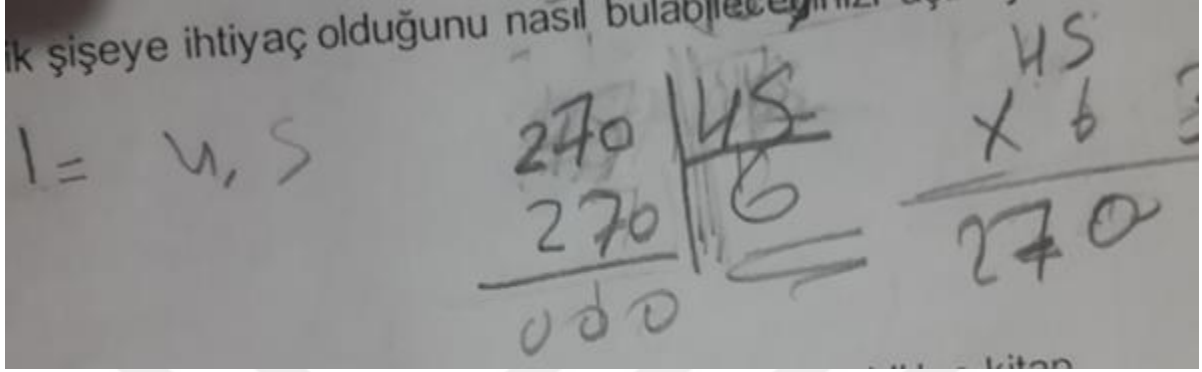 ik şişeye ihtiyaç olduğunu nasıl bulabileceğinizi
1 = 4,5
270 | 45
270 | 6
000
45
x 6
270
kitap